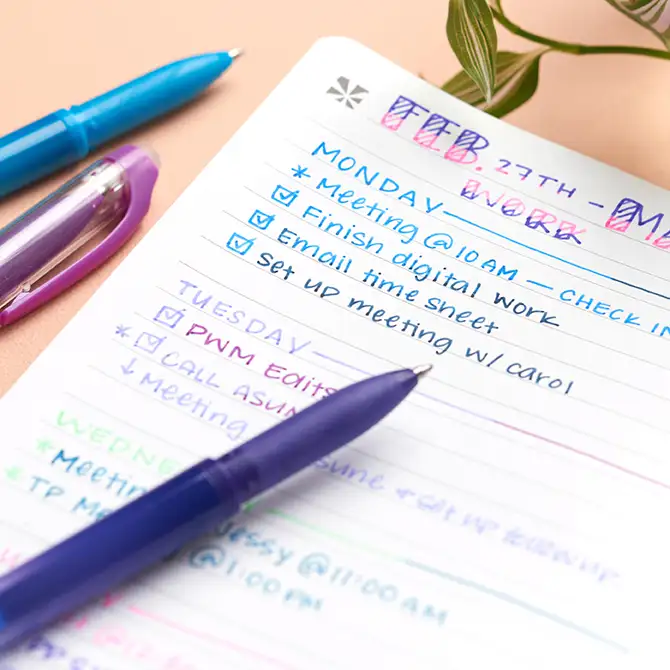 FEB. 27TH - MA
WORK
MONDAY
* Meeting @ 10 AM — CHECK IN
☑ Finish digital work
☑ Email time sheet
☑ Set up meeting w/ carol
TUESDAY
☑ PWM Edits
* ☑ CALL ASUN
↓ Meeting sune + set up follow up
WEDNE
* Meetin Jessy @ 11:00 AM
* TP Me @ 1:00 PM